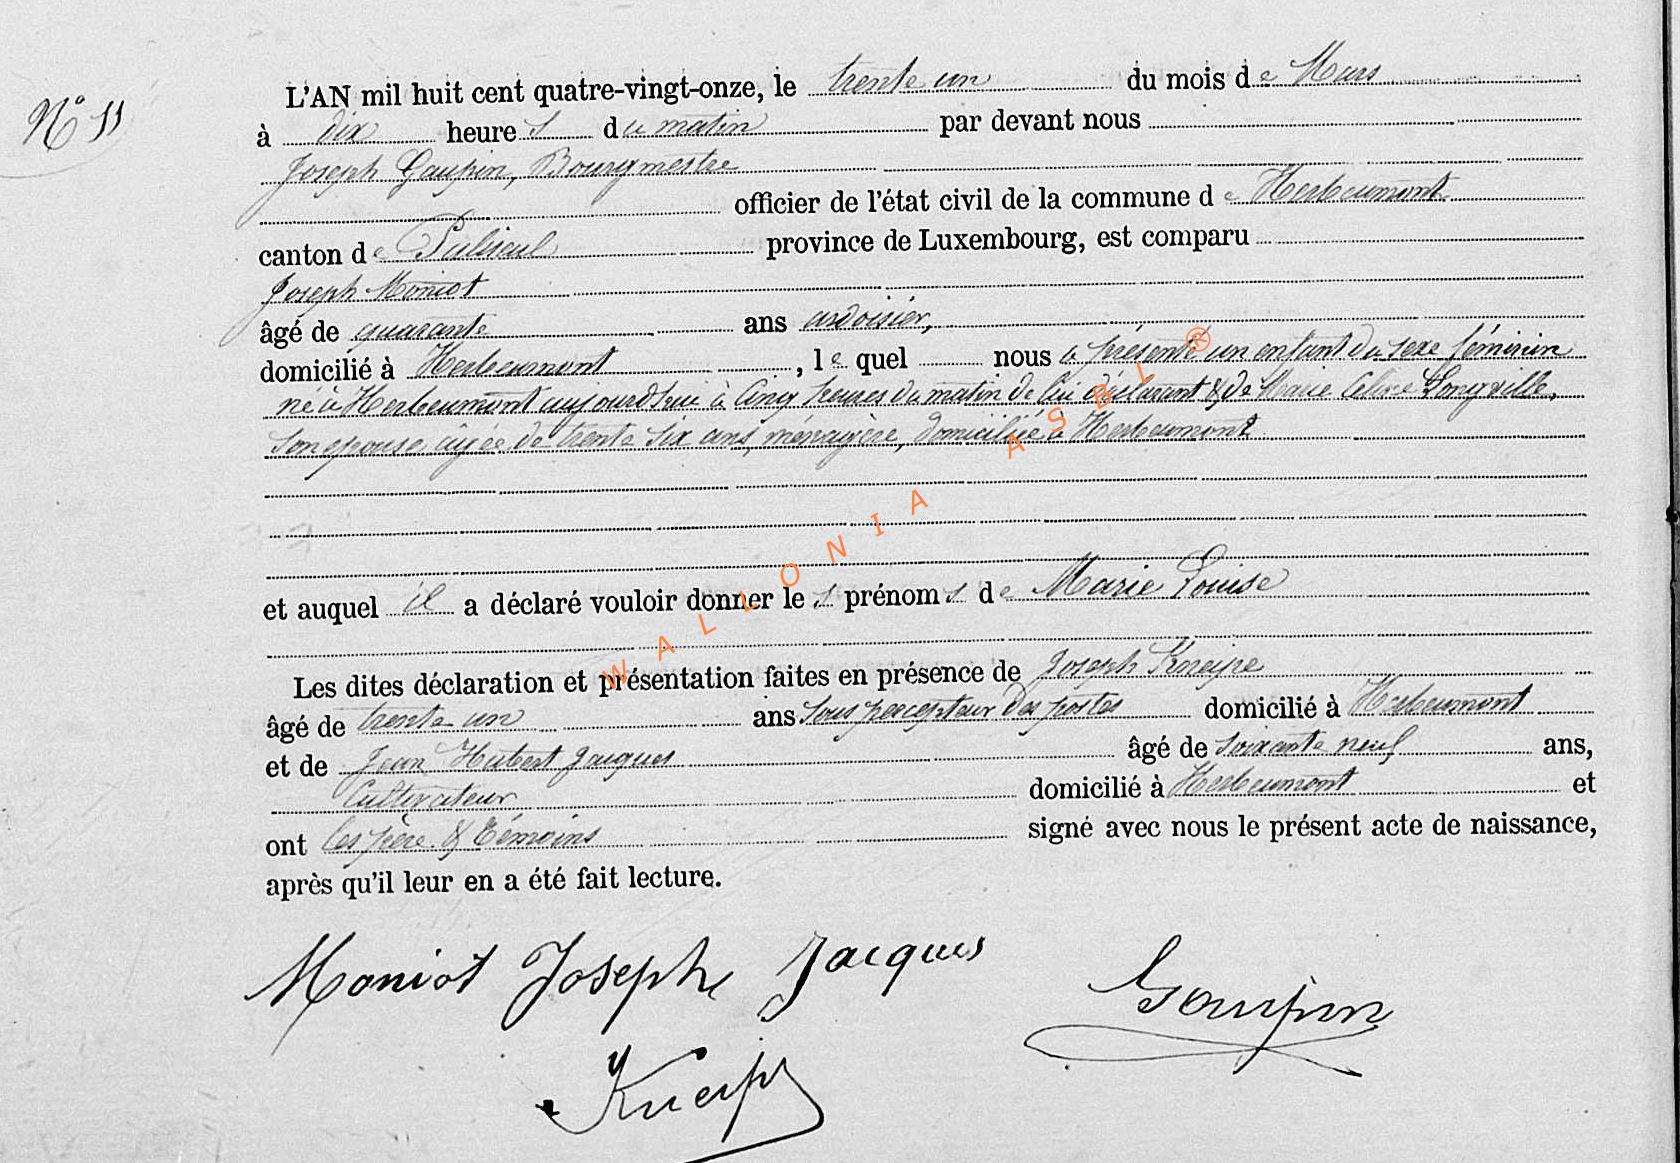 N° 11
L'AN mil huit cent quatre-vingt-onze, le trente un du mois de Mars
à dix heures du matin par devant nous
Joseph Goupin, Bourgmestre
officier de l'état civil de la commune de Herbeumont
canton de Paliseul province de Luxembourg, est comparu
Joseph Moniot
âgé de quarante ans ardoisier,
domicilié à Herbeumont, le quel nous a présenté un enfant du sexe féminin
né à Herbeumont aujourd'hui à cinq heures du matin de lui déclarant & de Marie Longville,
son épouse âgée de trente six ans, ménagère, domiciliée à Herbeumont
et auquel il a déclaré vouloir donner les prénoms de Marie Louise
Les dites déclaration et présentation faites en présence de Joseph Kneipe
âgé de trente un ans sous percepteur des postes domicilié à Herbeumont
et de Jean Hubert Jacques âgé de soixante neuf ans,
Cultivateur domicilié à Herbeumont et
ont les père & témoins signé avec nous le présent acte de naissance,
après qu'il leur en a été fait lecture.
Moniot Joseph Jacques Goupin
Kneip
WALLONIA ASBL ®